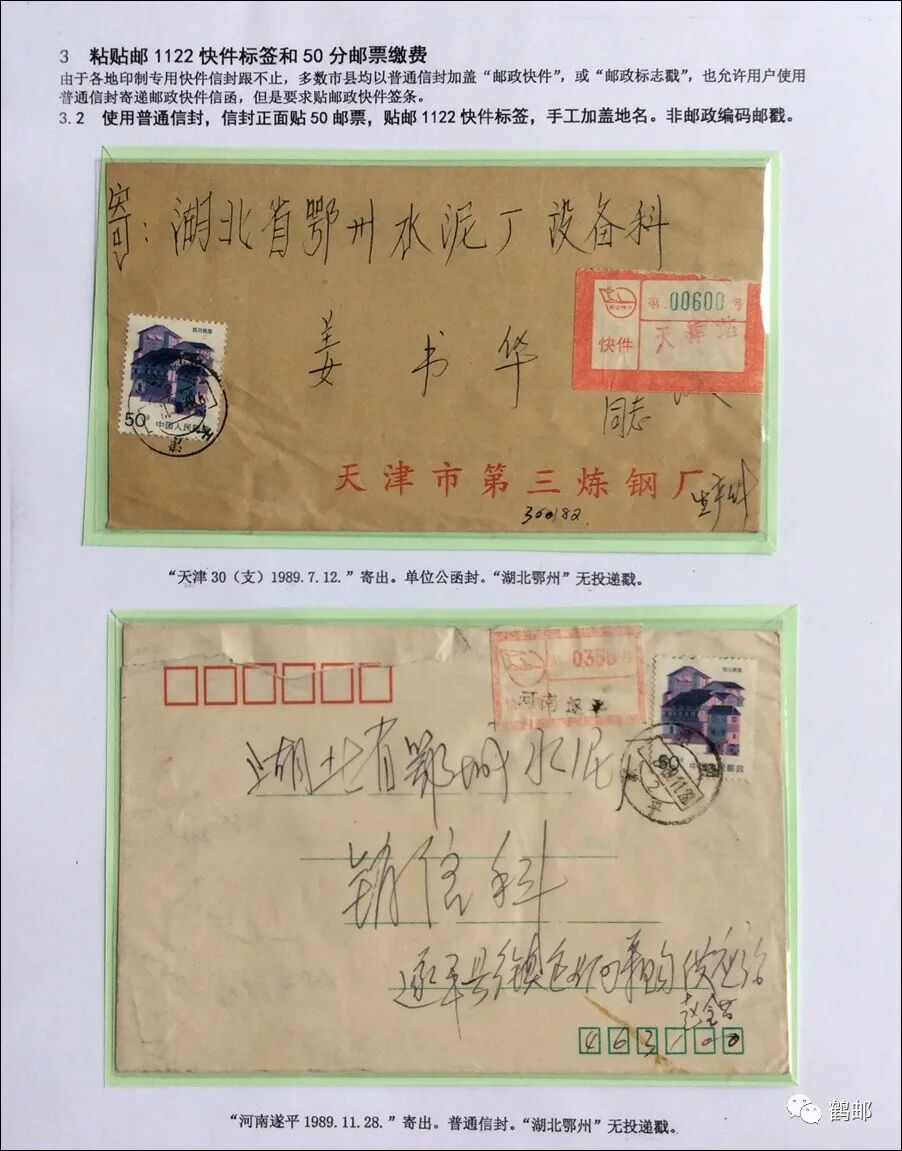 3 粘贴邮1122快件标签和50分邮票缴费
由于各地印制专用快件信封跟不止，多数市县均以普通信封加盖“邮政快件”，或“邮政标志戳”，也允许用户使用
普通信封寄递邮政快件信函，但是要求贴邮政快件签条。
3.2 使用普通信封，信封正面贴50邮票，贴邮1122快件标签，手工加盖地名。非邮政编码邮戳。
寄：湖北省鄂州水泥厂设备科
第 00600 号
快件 天津
姜书华
同志
50分 中国人民邮政
天津市第三炼钢厂
300182
“天津30（支）1989.7.12.”寄出。单位公函封。“湖北鄂州”无投递戳。
河南遂平
湖北省鄂城水泥厂
50分 中国人民邮政
销信科
赵金
463100
“河南遂平1989.11.28.”寄出。普通信封。“湖北鄂州”无投递戳。
鹤邮